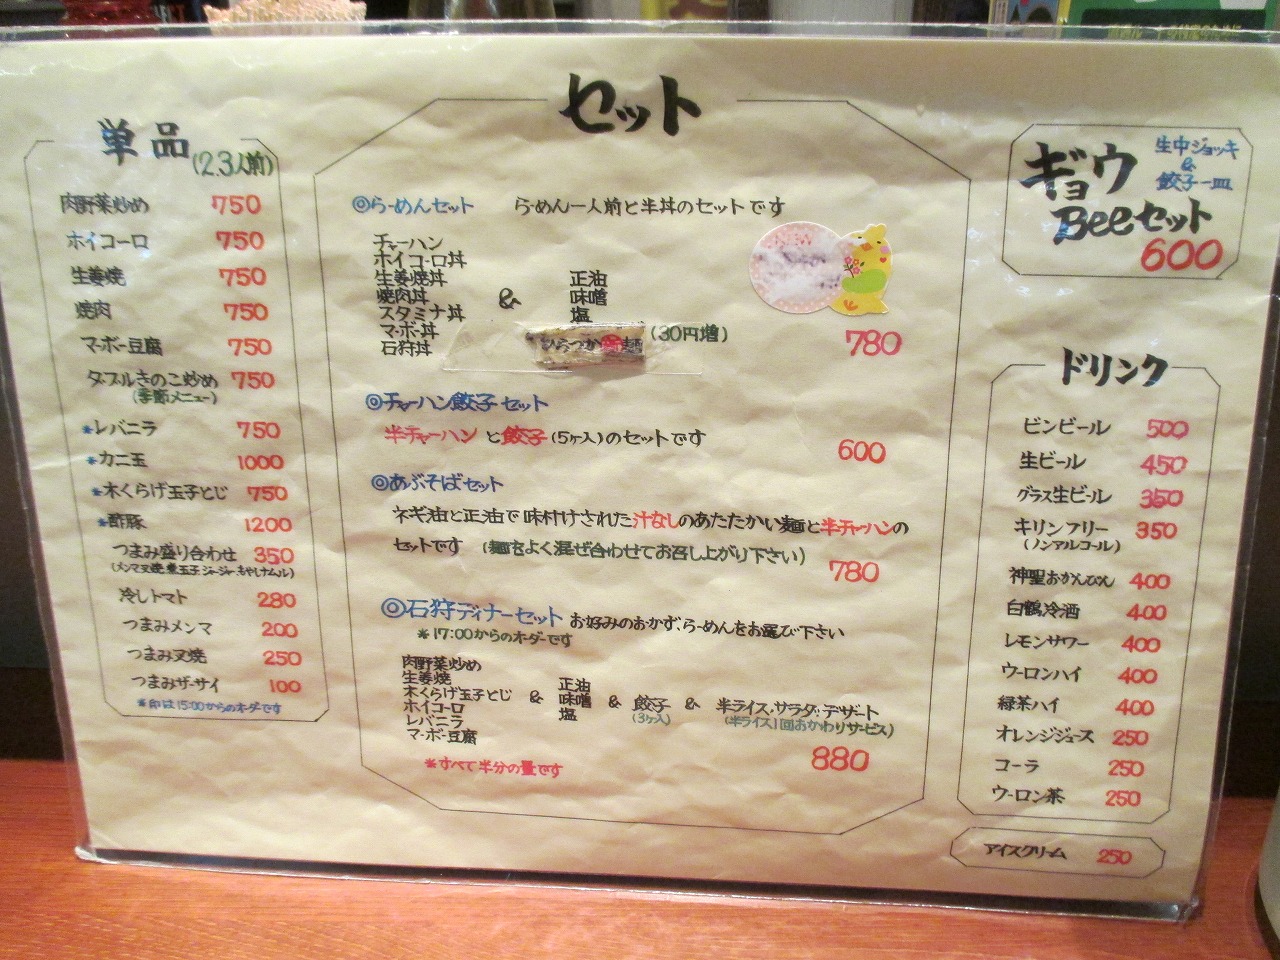 単品(2.3人前)
肉野菜炒め 750
ホイコーロ 750
生姜焼 750
焼肉 750
マーボー豆腐 750
ダブルきのこ炒め 750
(季節メニュー)
*レバニラ 750
*カニ玉 1000
*木くらげ玉子とじ 750
*酢豚 1200
つまみ盛り合わせ 350
冷しトマト 280
つまみメンマ 200
つまみ叉焼 250
つまみザーサイ 100
*印は15:00からのオーダーです
セット
◎らーめんセット らーめん一人前と半丼のセットです
チャーハン
ホイコーロ丼
生姜焼丼
焼肉丼
スタミナ丼
マーボー丼
石狩丼
&
正油
味噌
塩
(30円増)
780
◎チャーハン餃子セット
半チャーハンと餃子(5ヶ入)のセットです
600
◎あぶそばセット
ネギ油と正油で味付けされた汁なしのあたたかい麺と半チャーハンの
セットです (麺をよく混ぜ合わせてお召し上がり下さい)
780
◎石狩ディナーセット お好みのおかず、らーめんをお選び下さい
*17:00からのオーダーです
肉野菜炒め
生姜焼
木くらげ玉子とじ
ホイコーロ
レバニラ
マーボー豆腐
&
正油
味噌
塩
&
餃子
(3ヶ入)
&
半ライス・サラダ・デザート
(半ライス1回おかわりサービス)
*すべて半分の量です
880
ギョウ
Beeセット
生中ジョッキ
&
餃子一皿
600
ドリンク
ビンビール 500
生ビール 450
グラス生ビール 350
キリンフリー 350
(ノンアルコール)
神聖おかんびん 400
白鶴冷酒 400
レモンサワー 400
ウーロンハイ 400
緑茶ハイ 400
オレンジジュース 250
コーラ 250
ウーロン茶 250
アイスクリーム 250